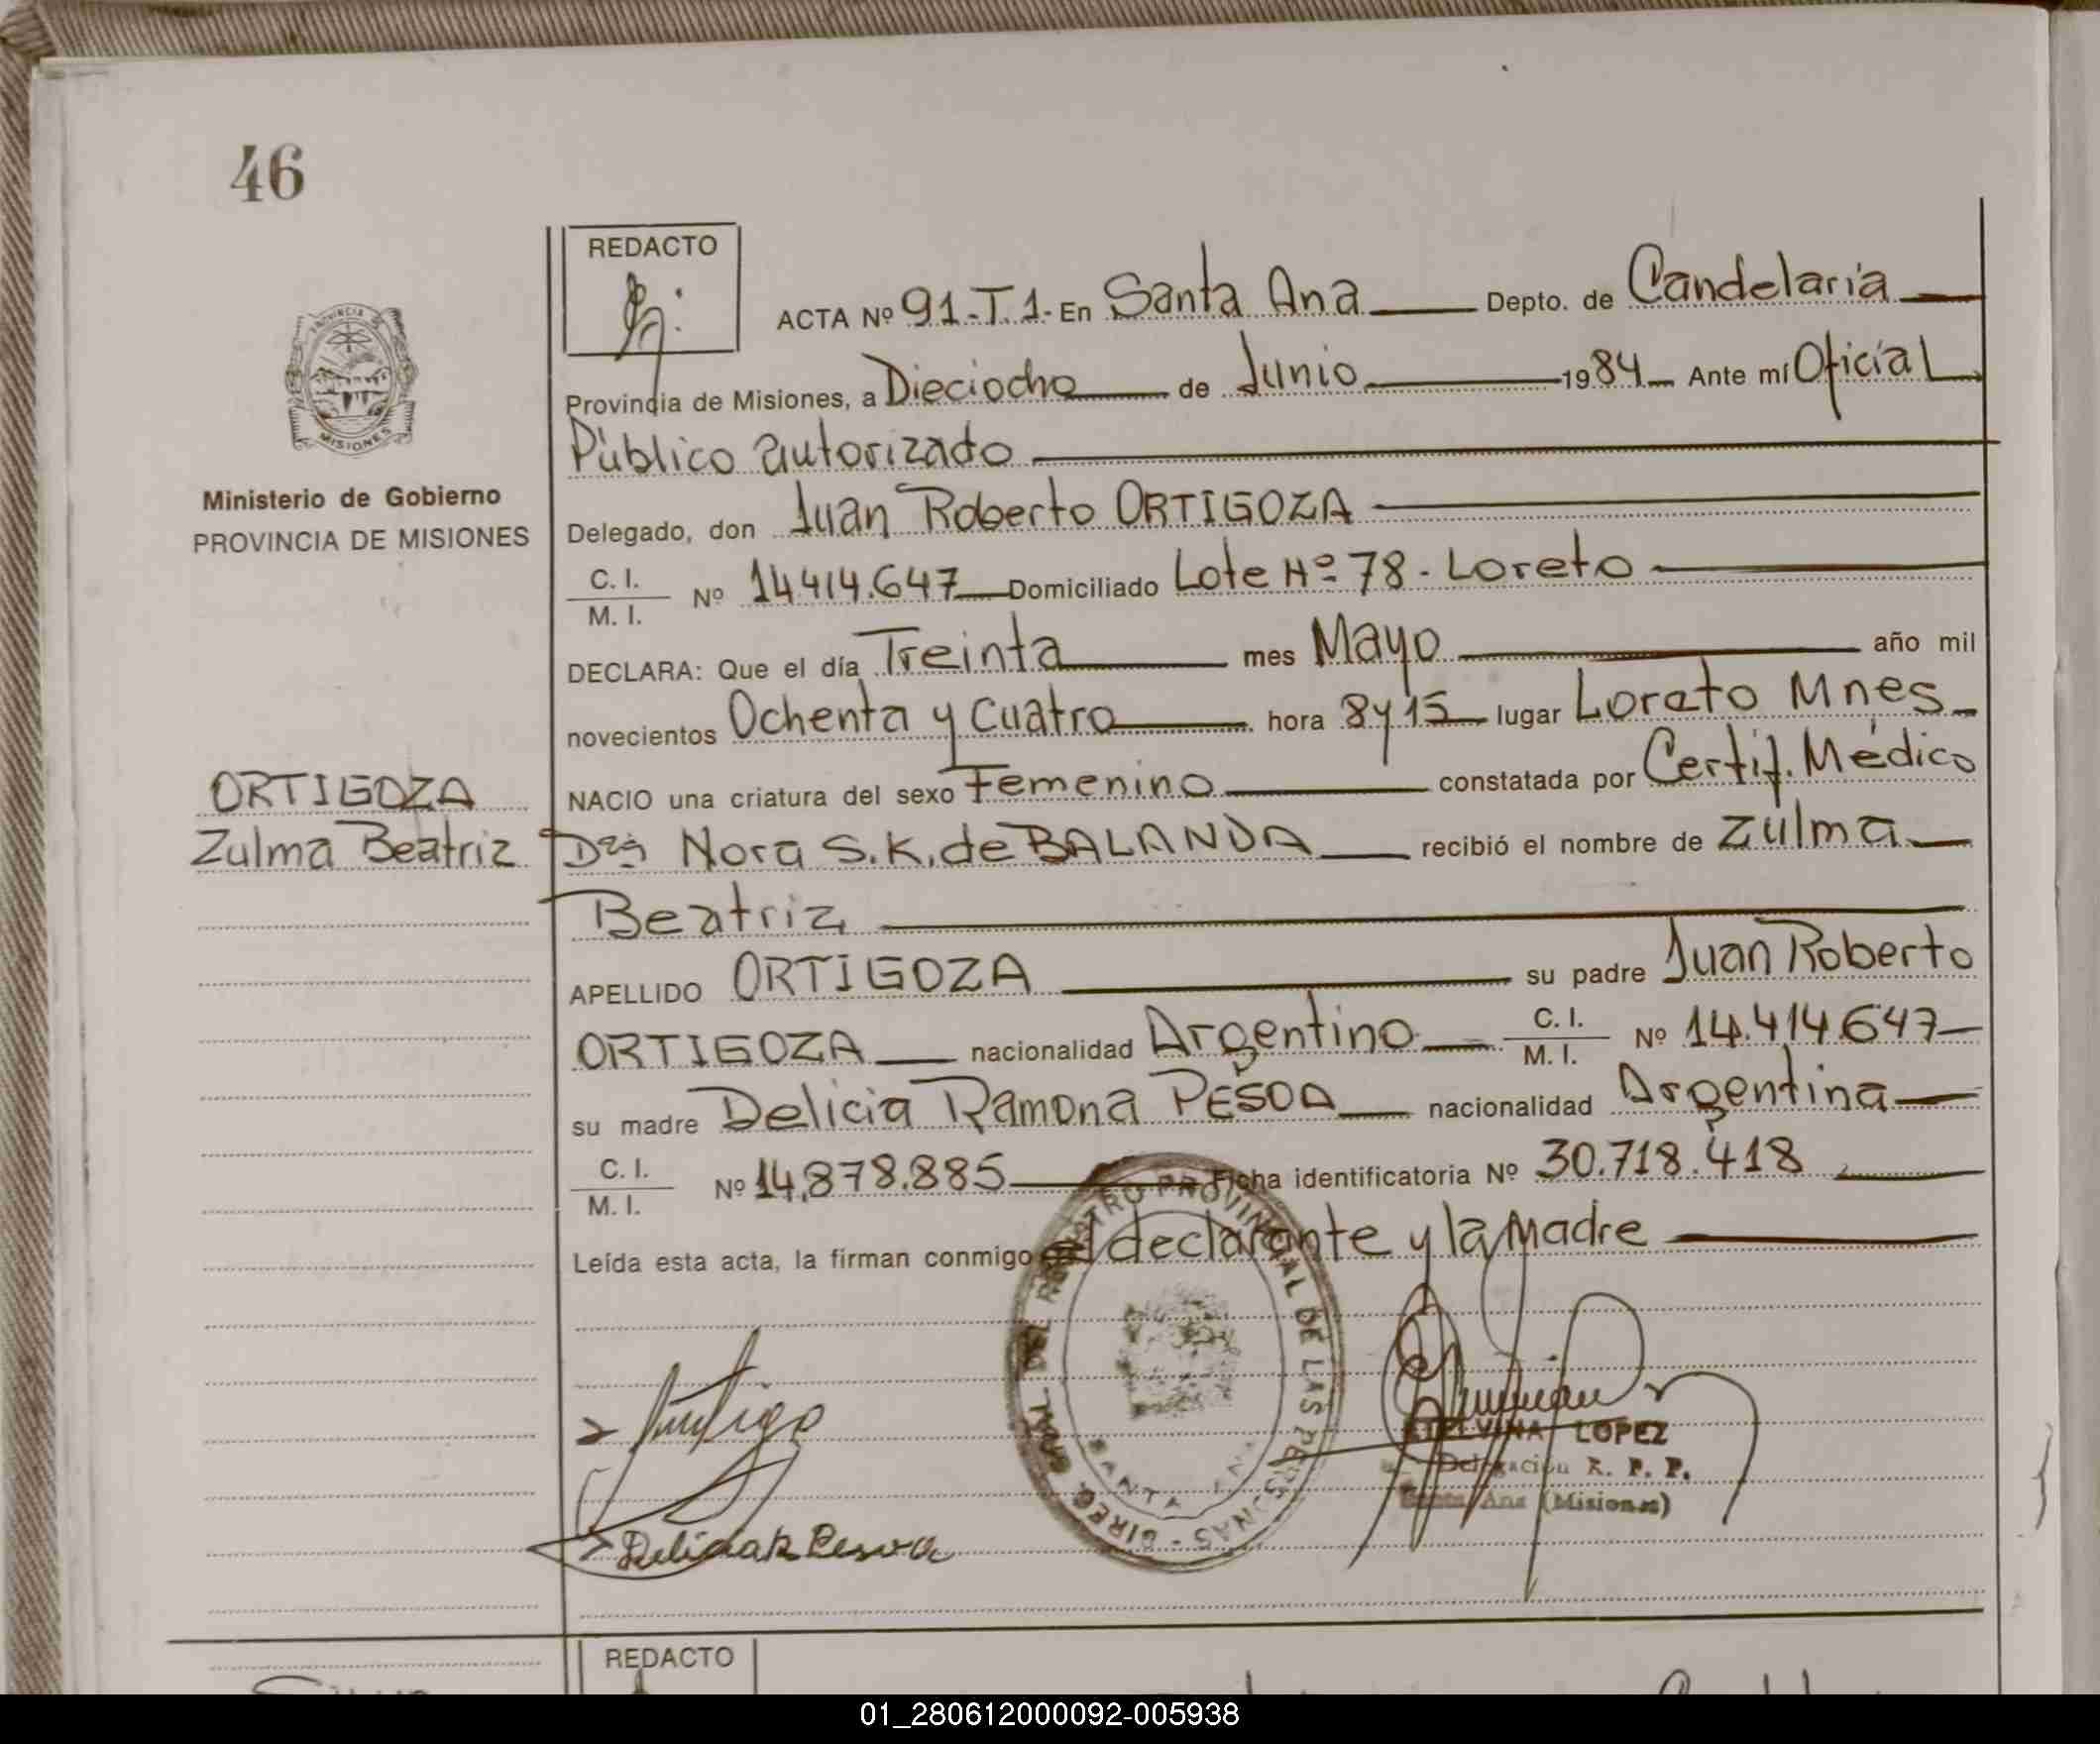 46
REDACTO
ACTA Nº 91-T.1- En Santa Ana Depto. de Candelaria
Provincia de Misiones, a Dieciocho de Junio 1984 Ante mí Oficial
Público autorizado
PROVINCIA DE
MISIONES
Ministerio de Gobierno
PROVINCIA DE MISIONES
Delegado, don Juan Roberto ORTIGOZA
C. I.
M. I.
Nº 14.414.647 Domiciliado Lote Nº 78 - Loreto
DECLARA: Que el día Treinta mes Mayo año mil
novecientos Ochenta y Cuatro hora 8 y 15 lugar Loreto Mnes
NACIO una criatura del sexo Femenino constatada por Certif. Médico
ORTIGOZA
Zulma Beatriz
Dra Nora S.K. de BALANDA recibió el nombre de Zulma
Beatriz
APELLIDO ORTIGOZA su padre Juan Roberto
ORTIGOZA nacionalidad Argentino C. I. M. I. Nº 14.414.647
su madre Delicia Ramona PESOA nacionalidad Argentina
C. I.
M. I.
Nº 14.878.885 Ficha identificatoria Nº 30.718.418
Leída esta acta, la firman conmigo el declarante y la Madre
DIREC. GRAL. DEL REGISTRO PROVINCIAL DE LAS PERSONAS
SANTA ANA
ETELVINA LOPEZ
Delegación R. P. P.
Santa Ana (Misiones)
Delicia R Pesoa
REDACTO
01_280612000092-005938